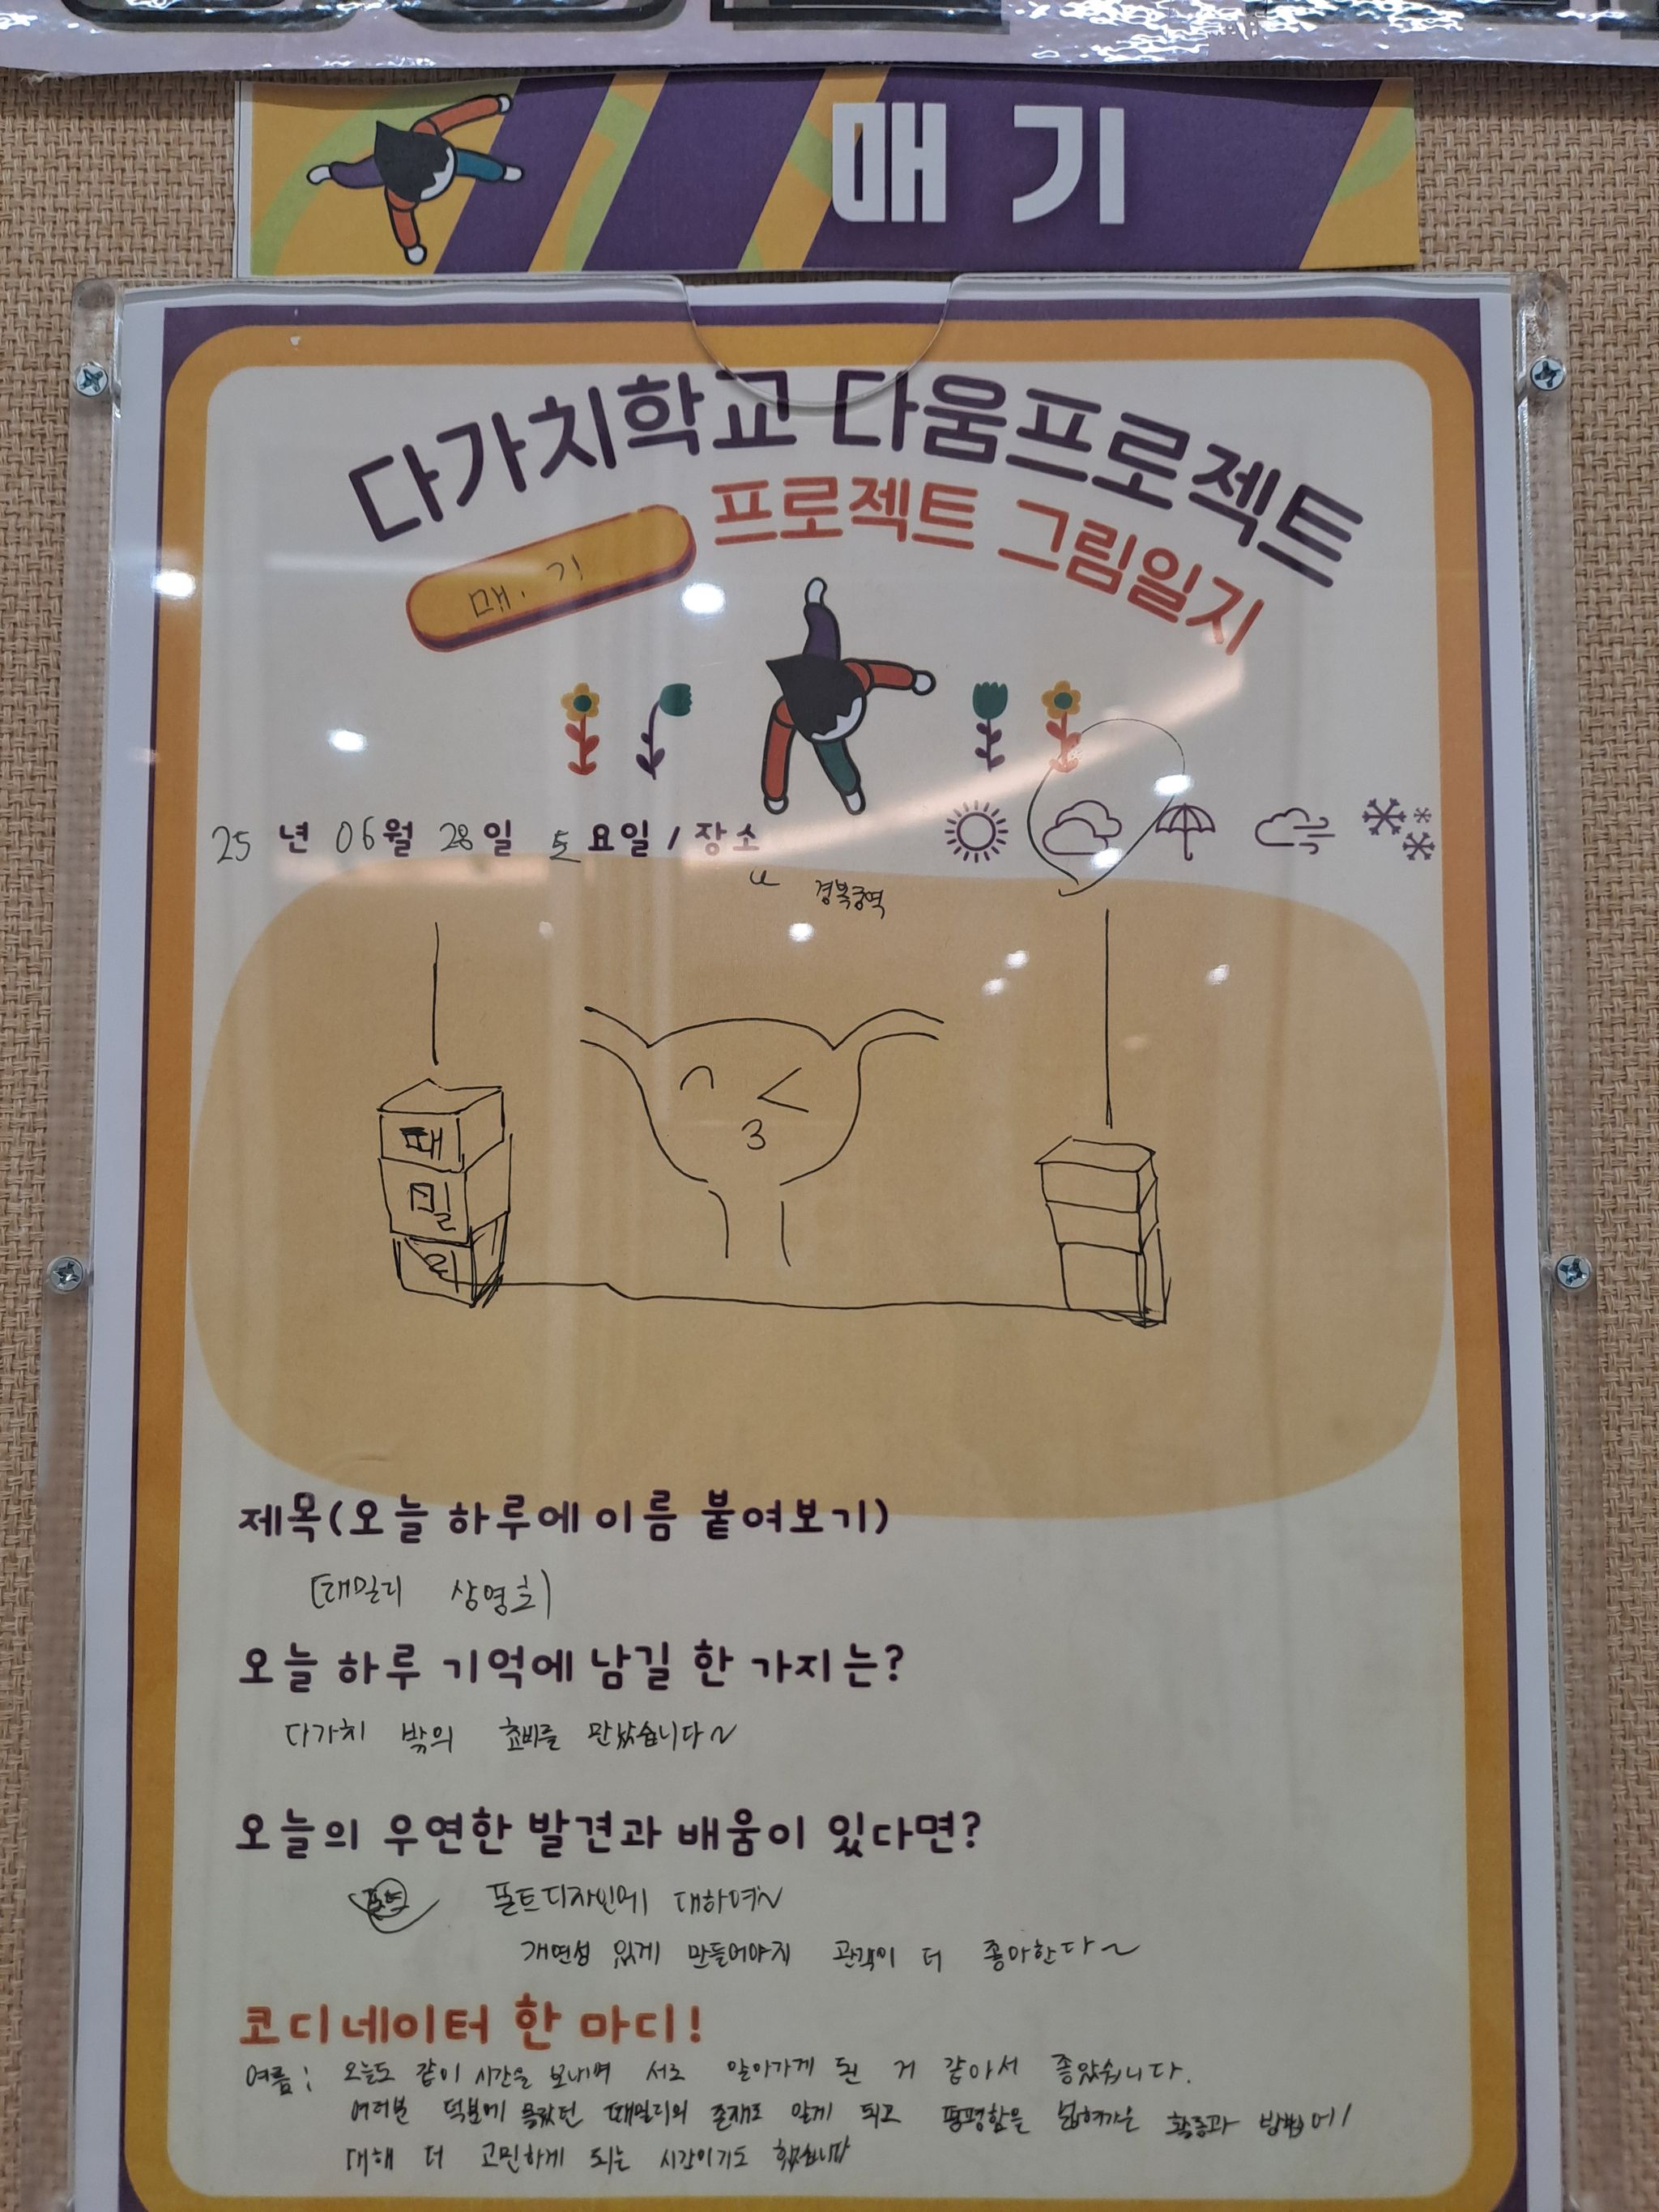 매기
다가치학교 다움프로젝트
프로젝트 그림일지
매.기
25년 06월 28일 토요일 / 장소
경복궁역
때
밀
리
3
제목(오늘 하루에 이름 붙여보기)
[때밀리 상영회]
오늘 하루 기억에 남길 한 가지는?
다가치 밖의 쵸비를 만났습니다~
오늘의 우연한 발견과 배움이 있다면?
폰트디자인에 대하여~
개연성 있게 만들어야지 관객이 더 좋아한다~
코디네이터 한 마디!
여름: 오늘도 같이 시간을 보내며 서로 알아가게 된 거 같아서 좋았습니다.
여러분 덕분에 몰랐던 때밀리의 존재도 알게 되고 평평함을 넓혀가는 방법에
대해 더 고민하게 되는 시간이기도 했습니다